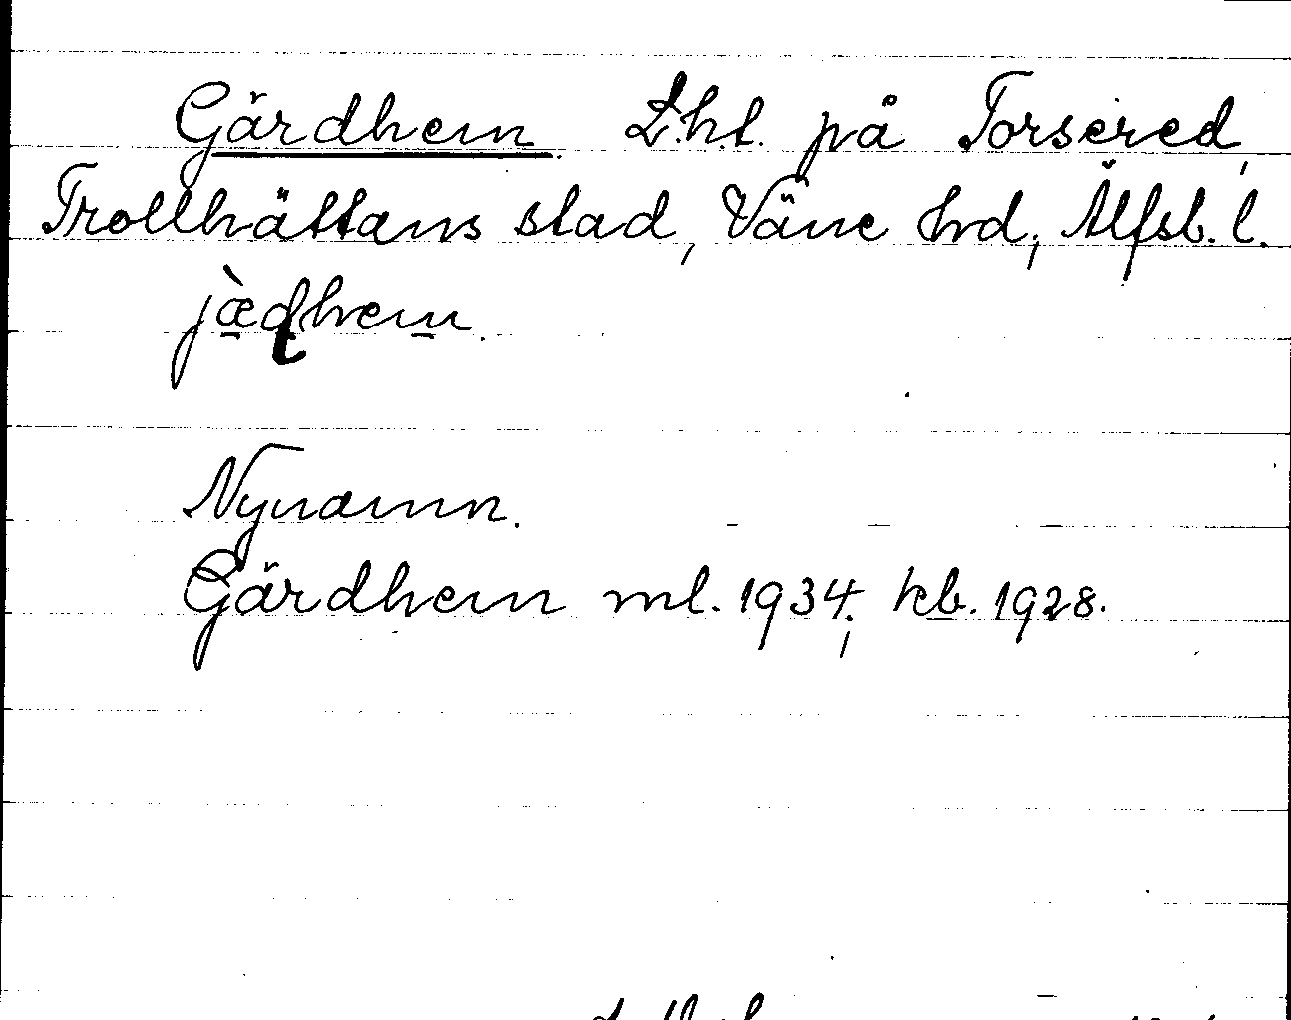 Gärdhem. L.h.t. på Torsered,
Trollhättans stad, Väne hd, Älfsb. l.
jæ̀ḍhem.
Nynamn.
Gärdhem ml. 1934; kb. 1928.